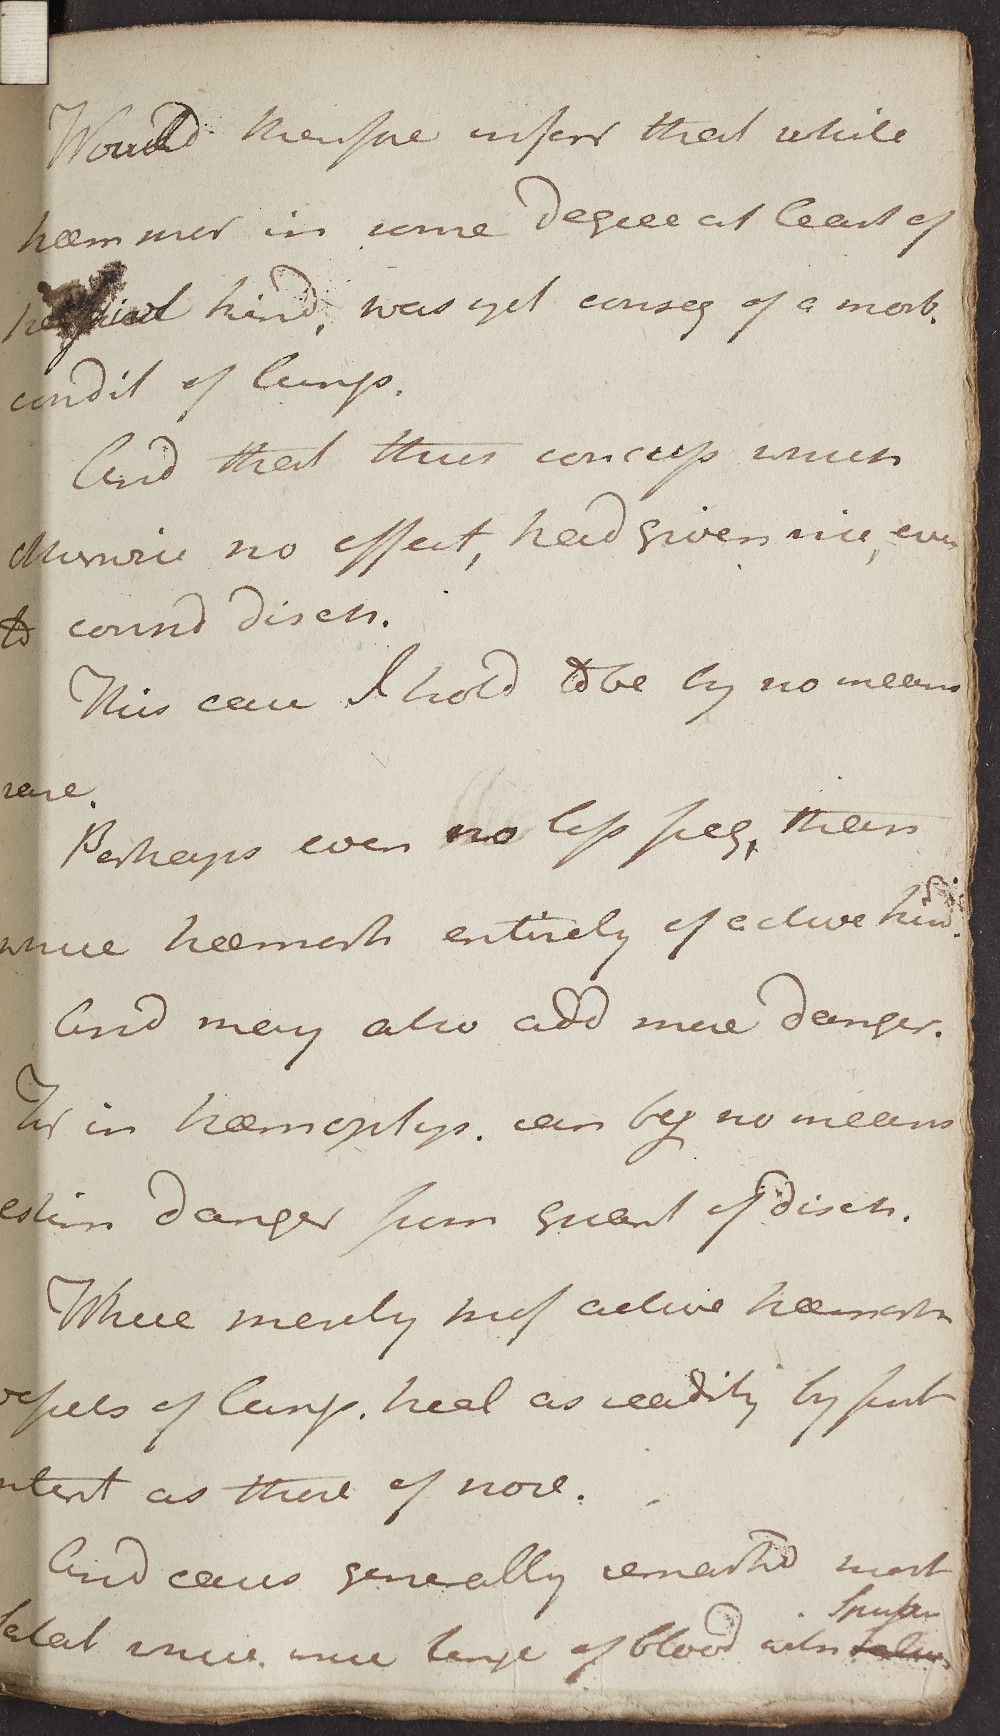 Would therefore inferr that while
hæmorr in some degree at least of
kind, was yet conseq of a morb.
condit of lungs.
And that thus concuss which
otherwise no effect, had given rise, even
to consid disch.
This case I hold to be by no means
rare.
Perhaps even no less freq, than
where hæmorrh entirely of active kind.
And may also add more danger.
For in hæmoptys. can by no means
estim danger from quant of disch.
Where merely rupt active hæmorrh
vessels of lungs. heal as readily by first
intent as those of nose.
And cases generally remark'd most
fatal where mere tinge of blood with Sputa